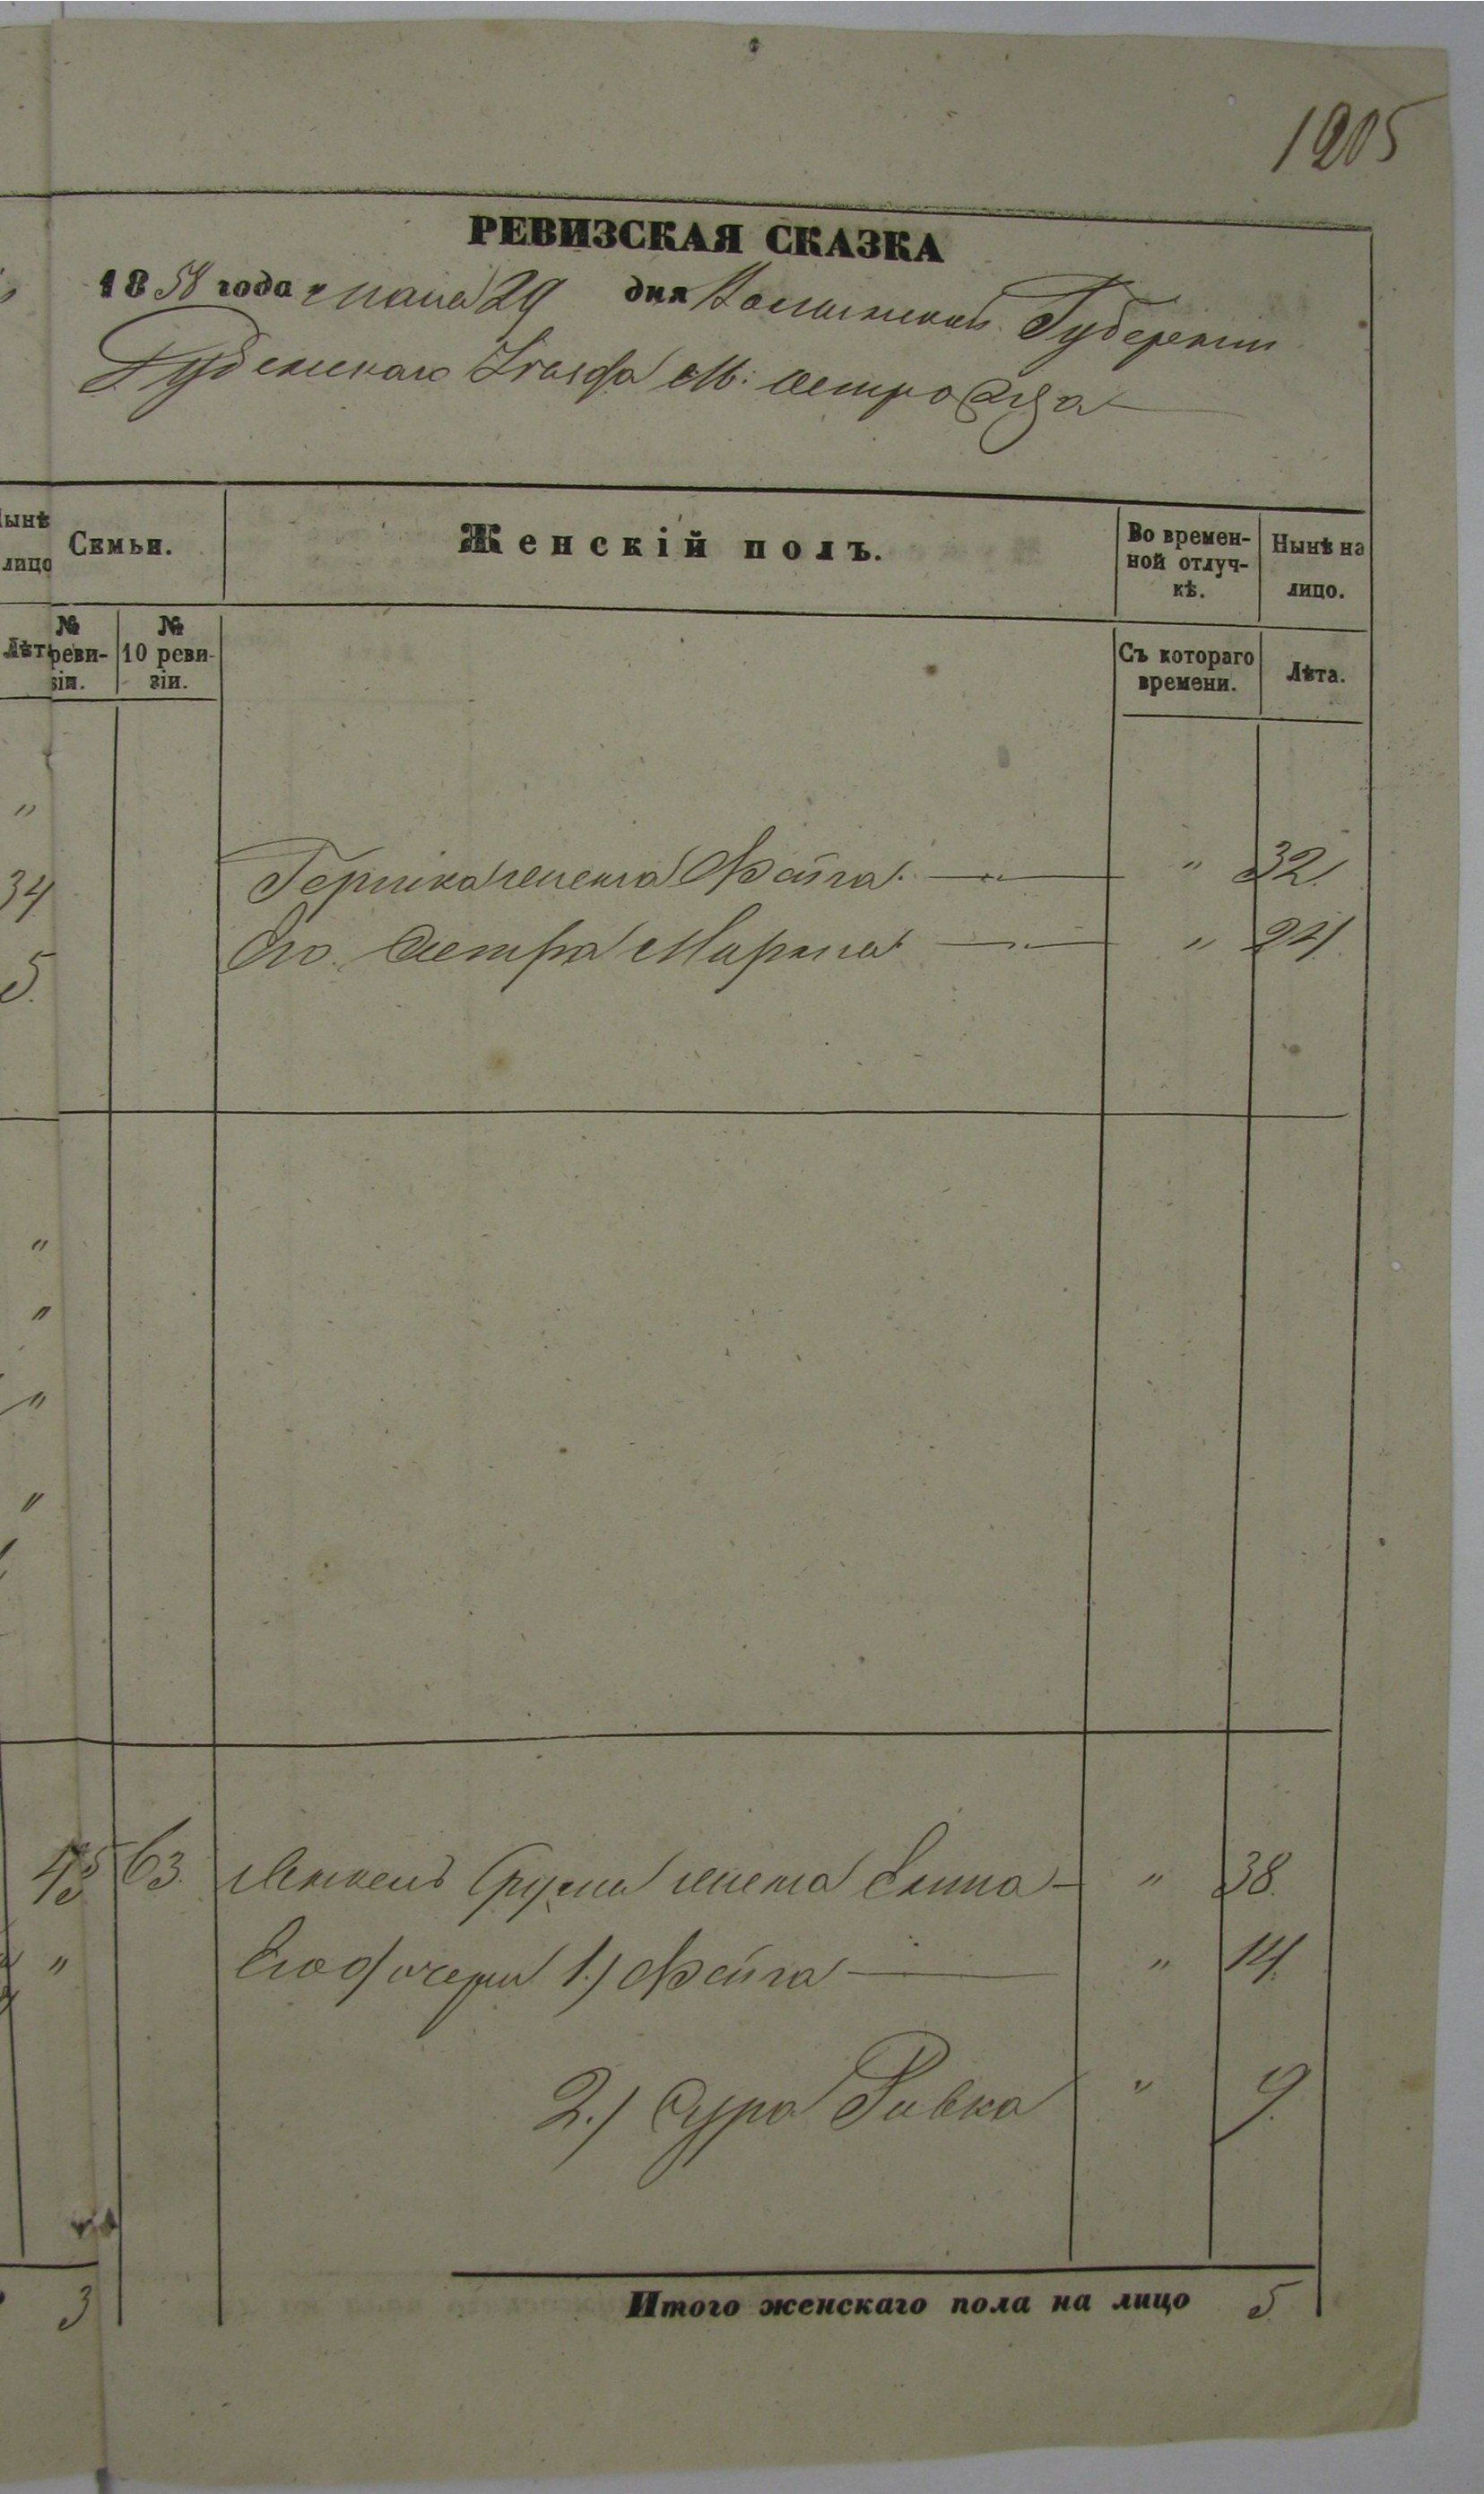 1205
РЕВИЗСКАЯ СКАЗКА
1858 года мая 29 дня Волынской Губернии
Дубенскаго Уѣзда М:
Семьи.
Женскій полъ.
Во времен-
ной отлуч-
кѣ.
Нынѣ на
лицо.
№
реви-
зіи.
№
10 реви-
зіи.
Съ котораго
времени.
Лѣта.
34
5.
Гершка жена Фейга " 32.
Его Сестра Мариа " 24.
"
"
"
"
45 63. жена " 38.
" Его дочери 1.) Фейга " 14.
2.) Сура Ривка " 9.
3
Итого женскаго пола на лицо 5